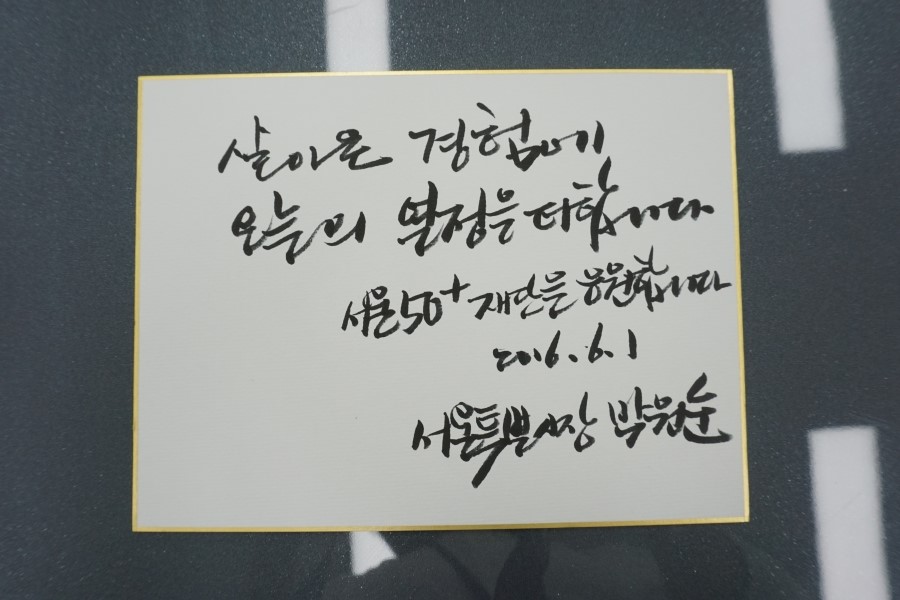 살아온 경험에
오늘의 열정을 더합니다
서울50+재단을 응원합니다
2016.6.1
서울특별시장 박원순